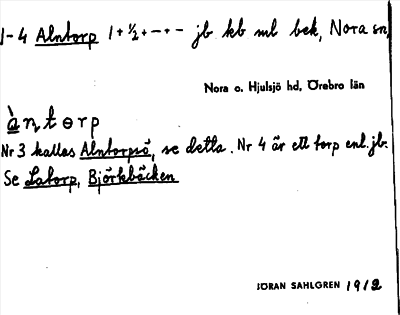 1-4 Alntorp 1+½+-+- jb kb ml bek, Nora sn,
Nora o. Hjulsjö hd, Örebro län
àntorp
Nr 3 kallas Alntorpsö, se detta. Nr 4 är ett torp enl. jb.
Se Latorp, Björkbäcken
JÖRAN SAHLGREN 1912